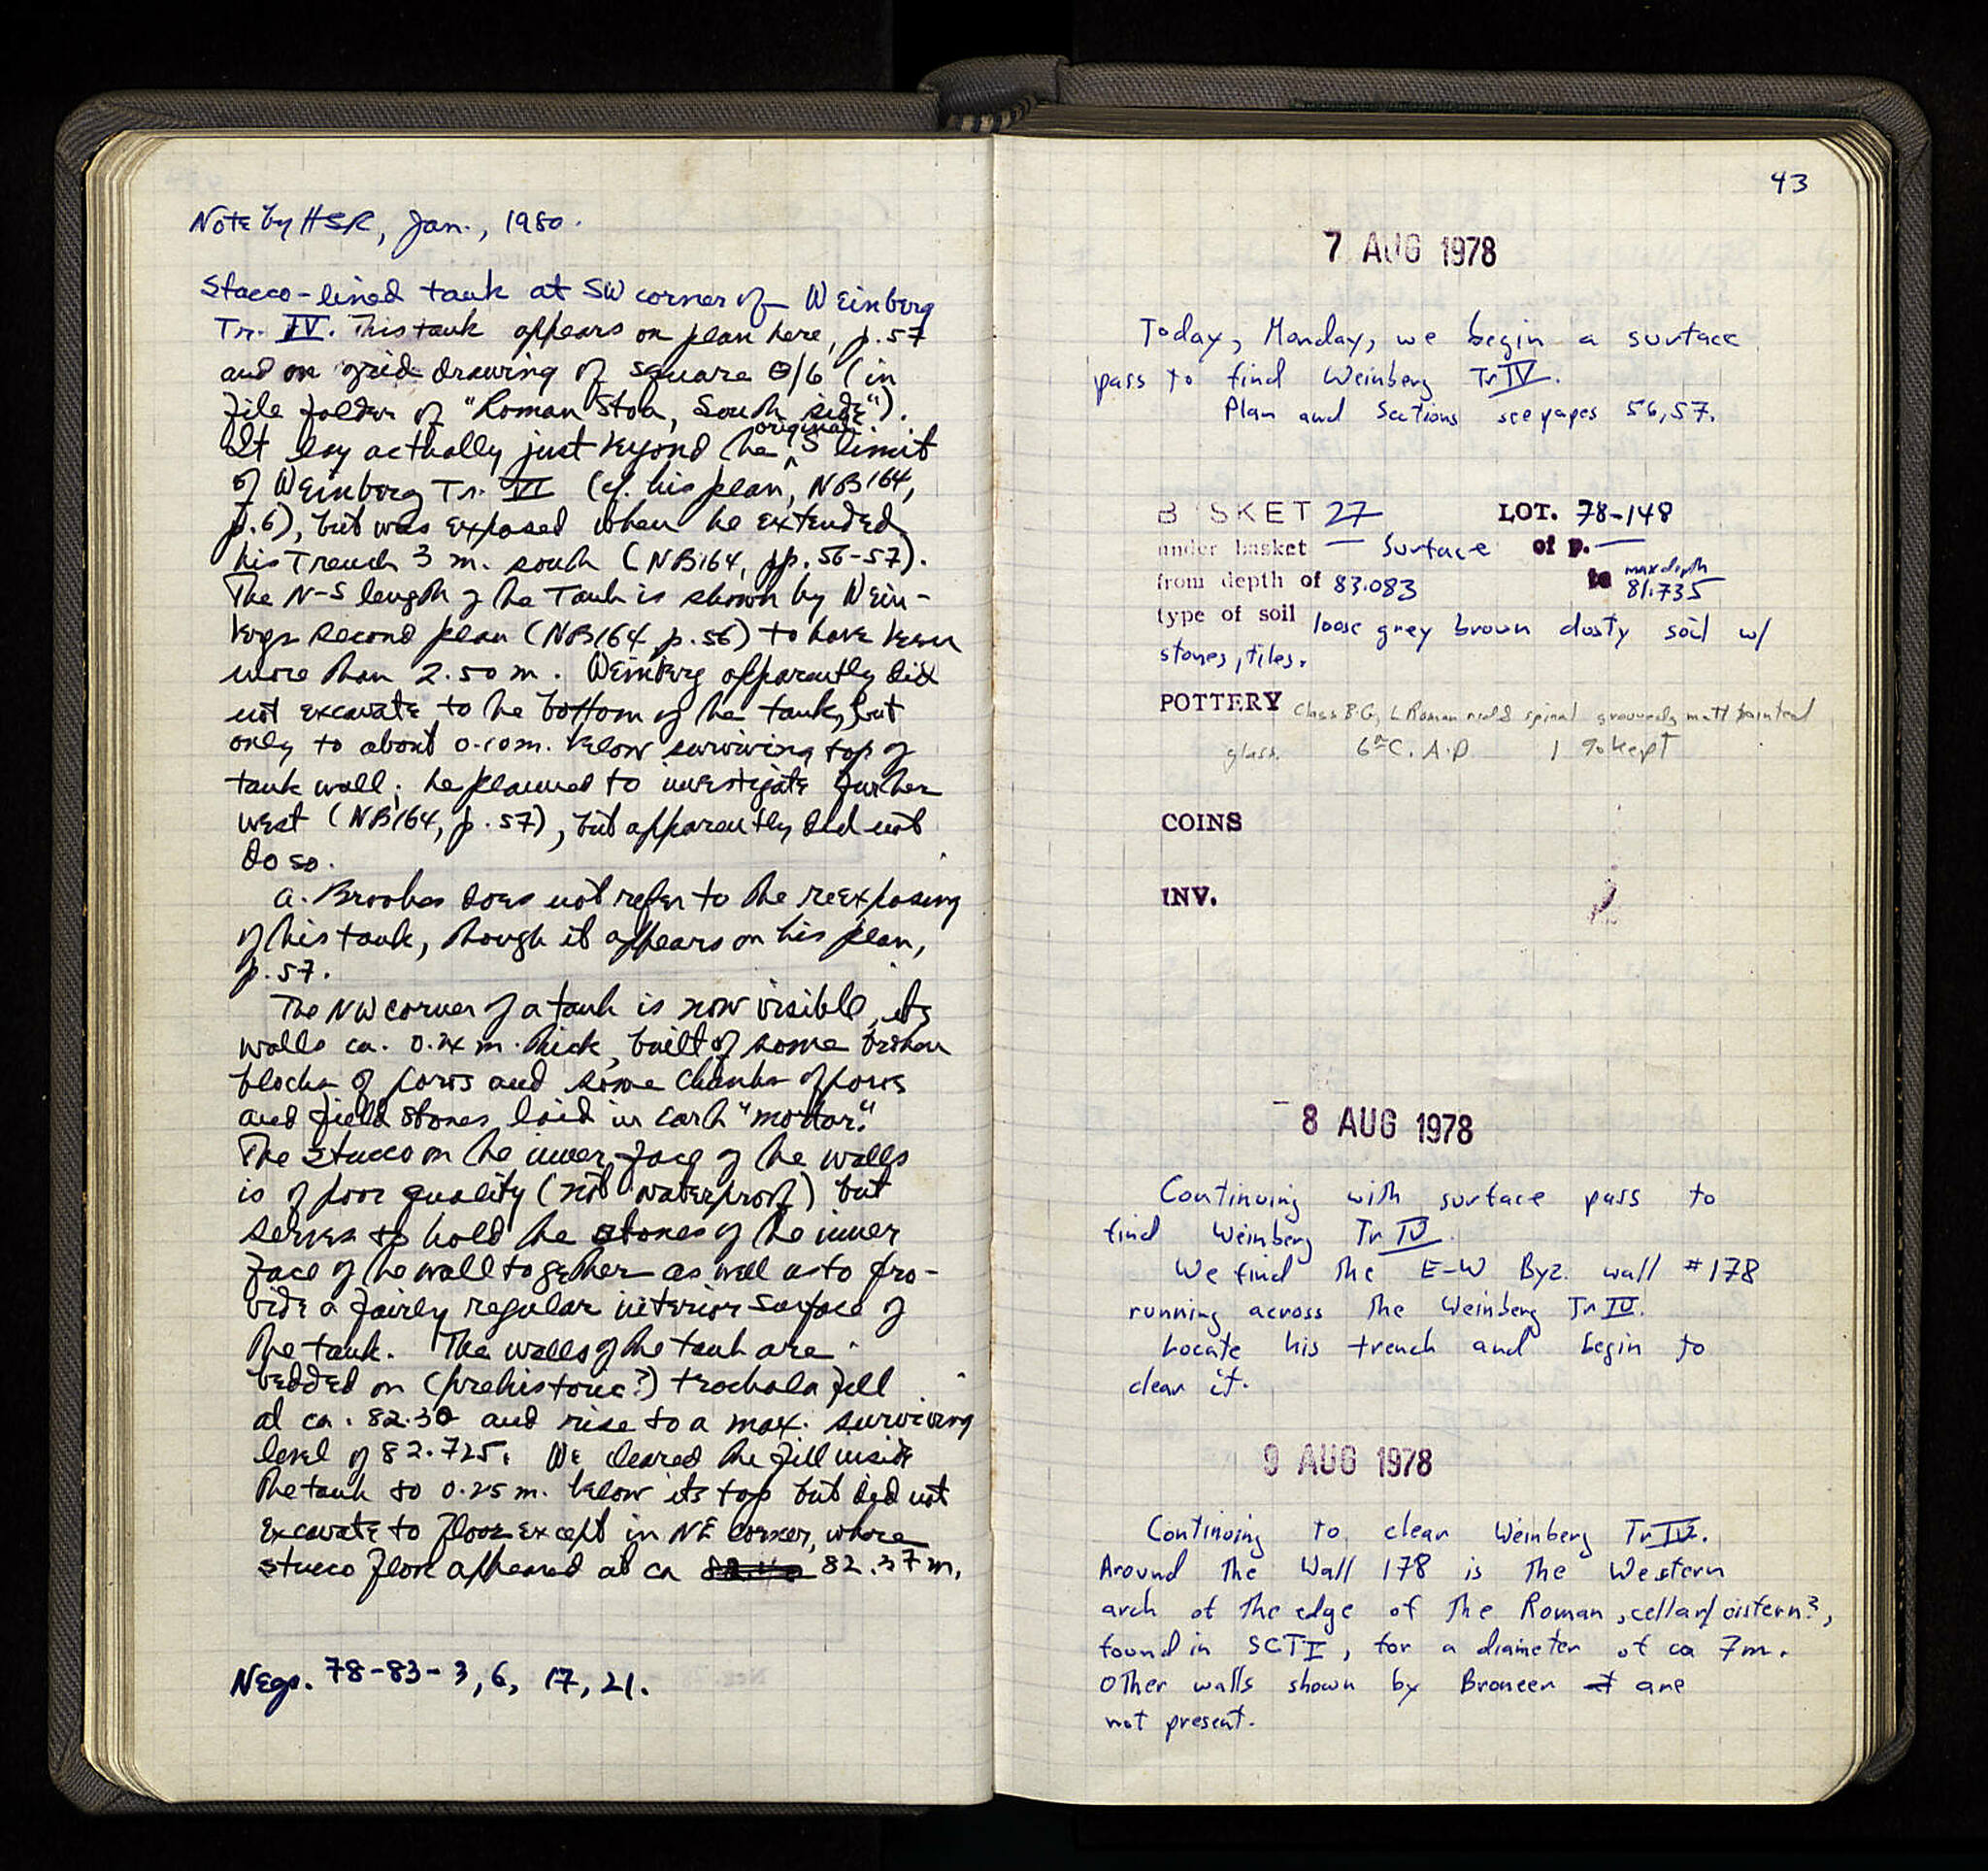 Note by HSR, Jan., 1980.
Stucco-lined tank at SW corner of Weinberg
Tr. IV. This tank appears on plan here, p.57
and on grid drawing of square Θ/6 (in
file folder of "Roman Stoa, South side").
It lay actually just beyond the original S limit
of Weinberg Tr. VI (cf. his plan, NB164,
p.6), but was exposed when he extended
his Trench 3 m. south (NB164, pp. 56-57).
The N-S length of the Tank is shown by Wein-
bergs second plan (NB164 p.56) to have been
more than 2.50 m. Weinberg apparently did
not excavate to the bottom of the tank, but
only to about 0.10m. below surviving top of
tank wall; he planned to investigate further
west (NB164, p.57), but apparently did not
do so.
A. Brookes does not refer to the reexposing
of this tank, though it appears on his plan,
p.57.
The NW corner of a tank is now visible, its
walls ca. 0.24 m. thick, built of some broken
blocks of poros and some chunks of poros
and field stones laid in earth "mortar."
The stucco on the inner face of the walls
is of poor quality (not waterproof) but
serves to hold the stones of the inner
face of the wall together as well as to pro-
vide a fairly regular interior surface of
the tank. The walls of the tank are
bedded on (prehistoric?) trochala fill
at ca. 82.30 and rise to a max. surviving
level of 82.725. We cleared the fill inside
the tank to 0.25 m. below its top but did not
excavate to floor except in NE corner, where
stucco floor appeared at ca 82.37m.
Negs. 78-83-3, 6, 17, 21.
43
7 AUG 1978
Today, Monday, we begin a surface
pass to find Weinberg Tr IV.
Plan and Sections see pages 56, 57.
B SKET 27 LOT. 78-148
under basket — Surface of p. —
from depth of 83.083 to max depth 81.735
type of soil loose grey brown dusty soil w/
stones, tiles.
POTTERY Class B.G, L Roman spiral grooved, matt painted
glass. 6th C. A.D. 1 % kept
COINS
INV.
8 AUG 1978
Continuing with surface pass to
find Weinberg Tr IV.
We find the E-W Byz. wall #178
running across the Weinberg Tr IV.
Locate his trench and begin to
clear it.
9 AUG 1978
Continuing to clear Weinberg Tr IV.
Around the Wall 178 is the Western
arch of the edge of the Roman, cellar/cistern?,
found in SCT I, for a diameter of ca 7m.
Other walls shown by Broneer are
not present.